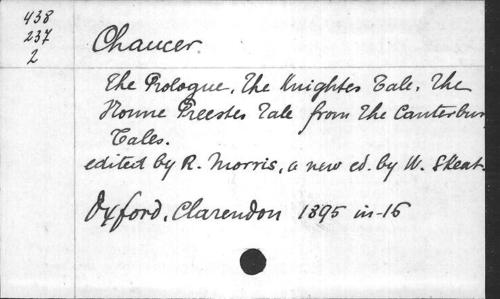 438
237
2
Chaucer.
The Prologue, The Knightes Tale, The
Nonne Preestes Tale from The Canterbury
Tales.
edited by R. Morris, a new ed. by W. Skeat.
Oxford, Clarendon 1895 in-16